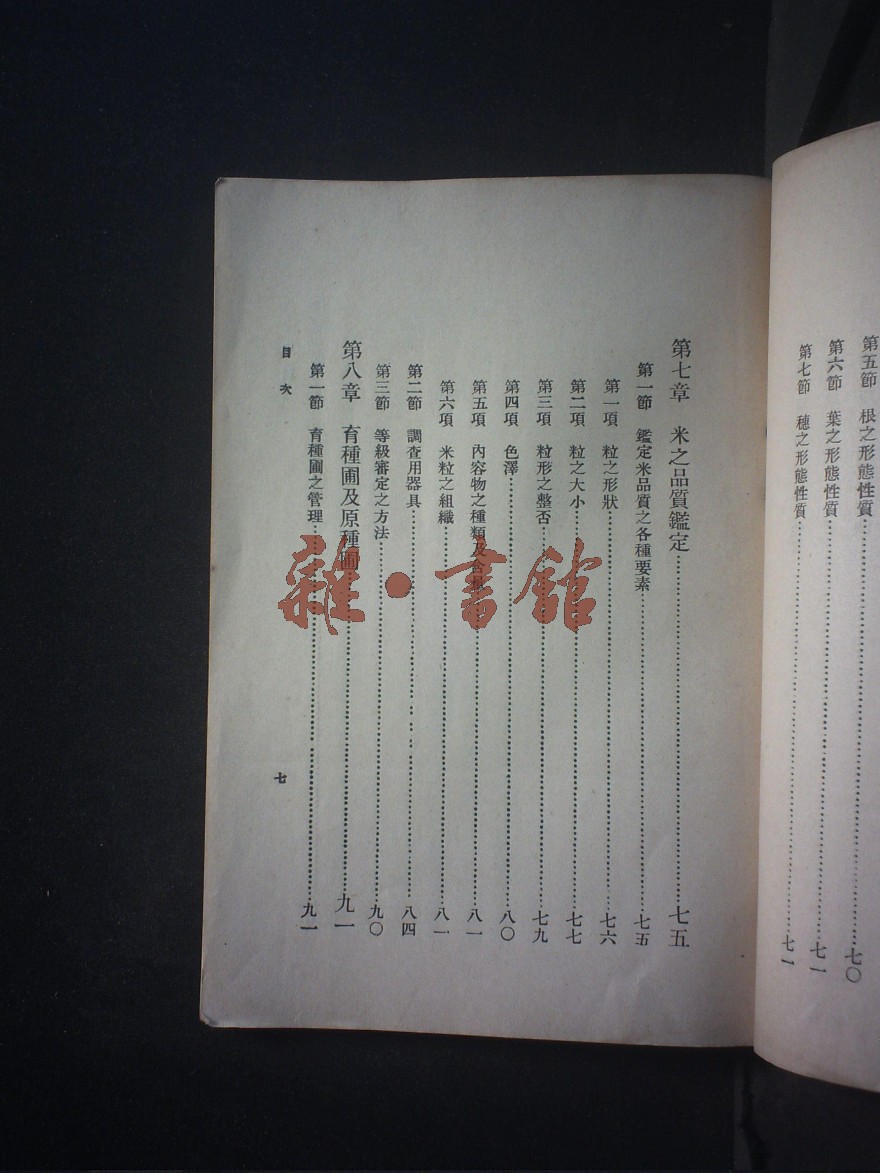 第五節　根之形態性質……七〇
第六節　葉之形態性質……七一
第七節　穗之形態性質……七一
第七章　米之品質鑑定……七五
第一節　鑑定米品質之各種要素……七五
第一項　粒之形狀……七六
第二項　粒之大小……七七
第三項　粒形之整否……七九
第四項　色澤……八〇
第五項　內容物之種類及含……八一
第六項　米粒之組織……八一
第二節　調查用器具……八四
第三節　等級審定之方法……九〇
第八章　育種圃及原種圃……九一
第一節　育種圃之管理……九一
目次
七
雜·書館